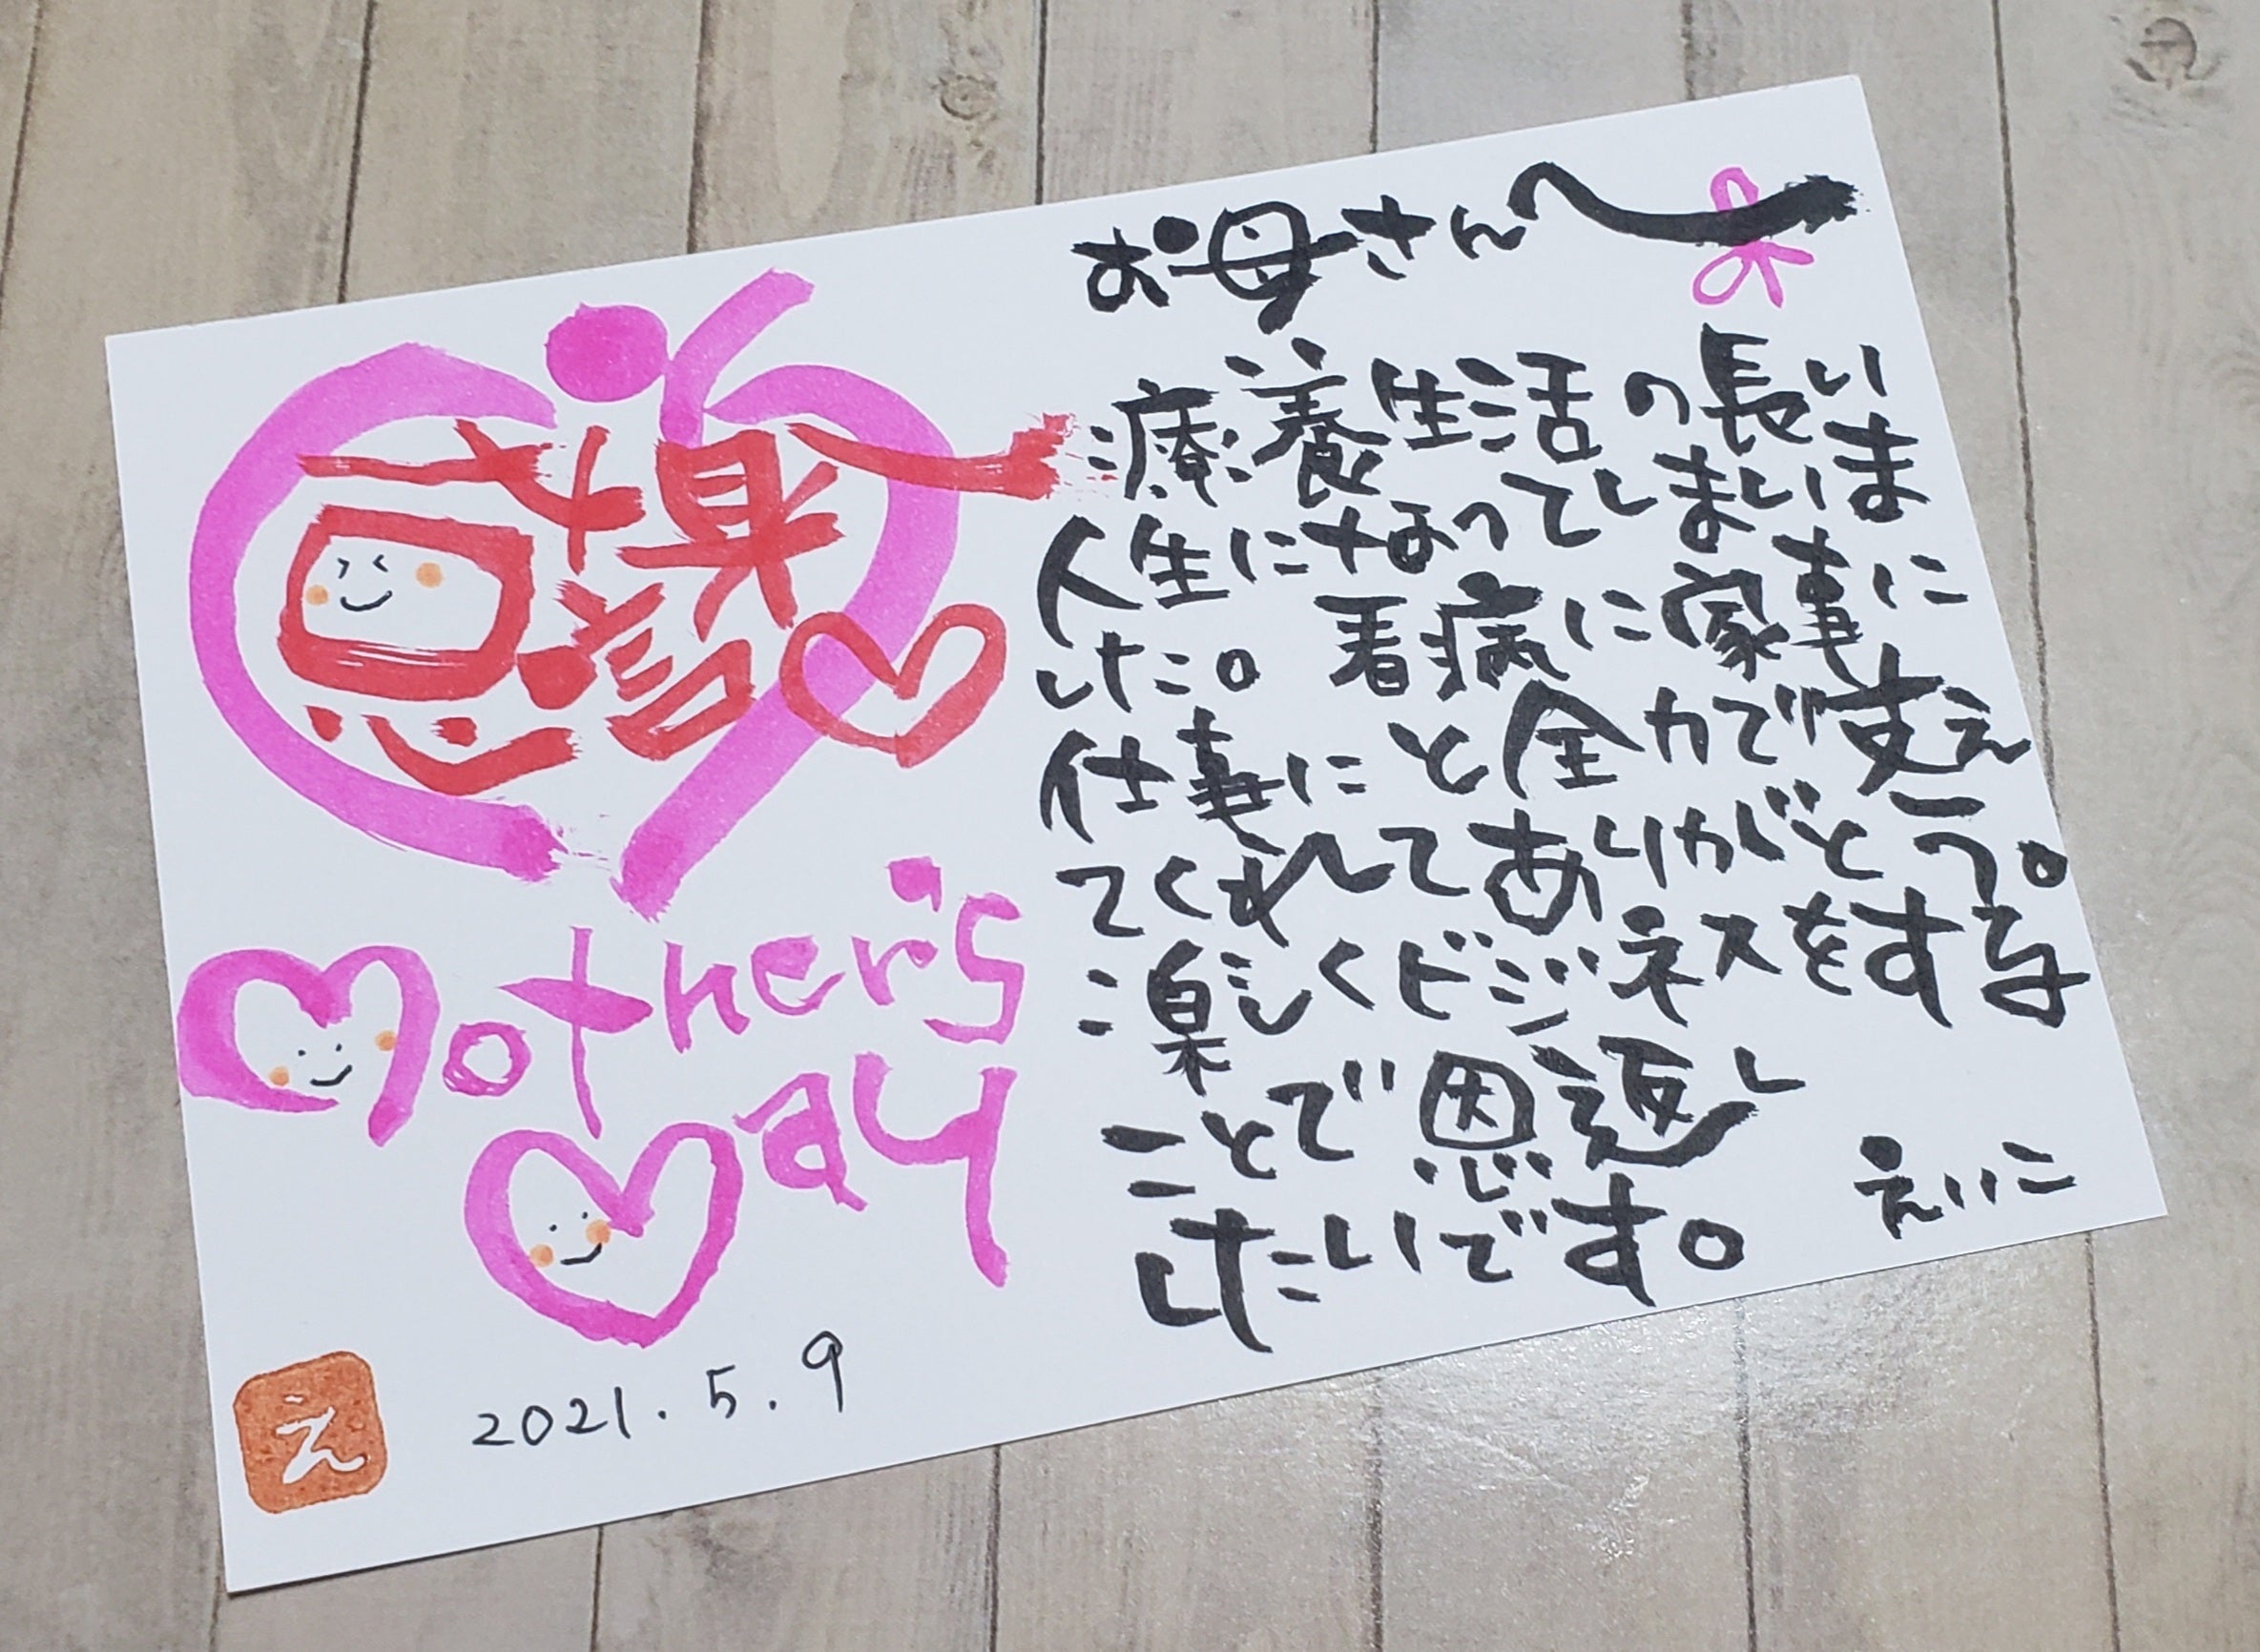 感謝
Mother's
Day
2021.5.9
え
お母さんへ
療養生活の長い
人生になってしまいま
した。看病に家事に
仕事にと全力で支え
てくれてありがとう。
楽しくビジネスをする
ことで恩返し
したいです。
えいこ